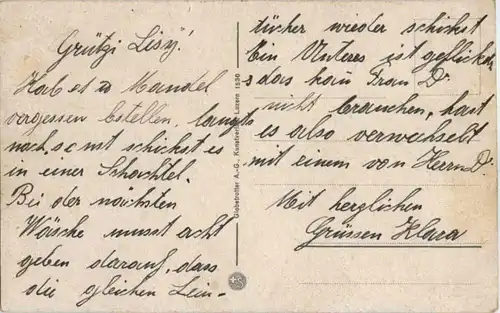 Grützi Lisy!
Hab es Mandel
vergessen bestellen, langts
noch, sonst schickst es
in einer Schachtel.
Bei der nächsten
Wäsche musst acht
geben darauf, dass
die gleichen Lein-
Globetrotter A.-G., Kunstverlag, Luzern 1530
tücher wieder schickst
Ein Unteres ist geflickt
das kann Frau Dr.
nicht brauchen, hast
es also verwechselt
mit einem von Herrn Dr.
Mit herzlichen
Grüssen Klara